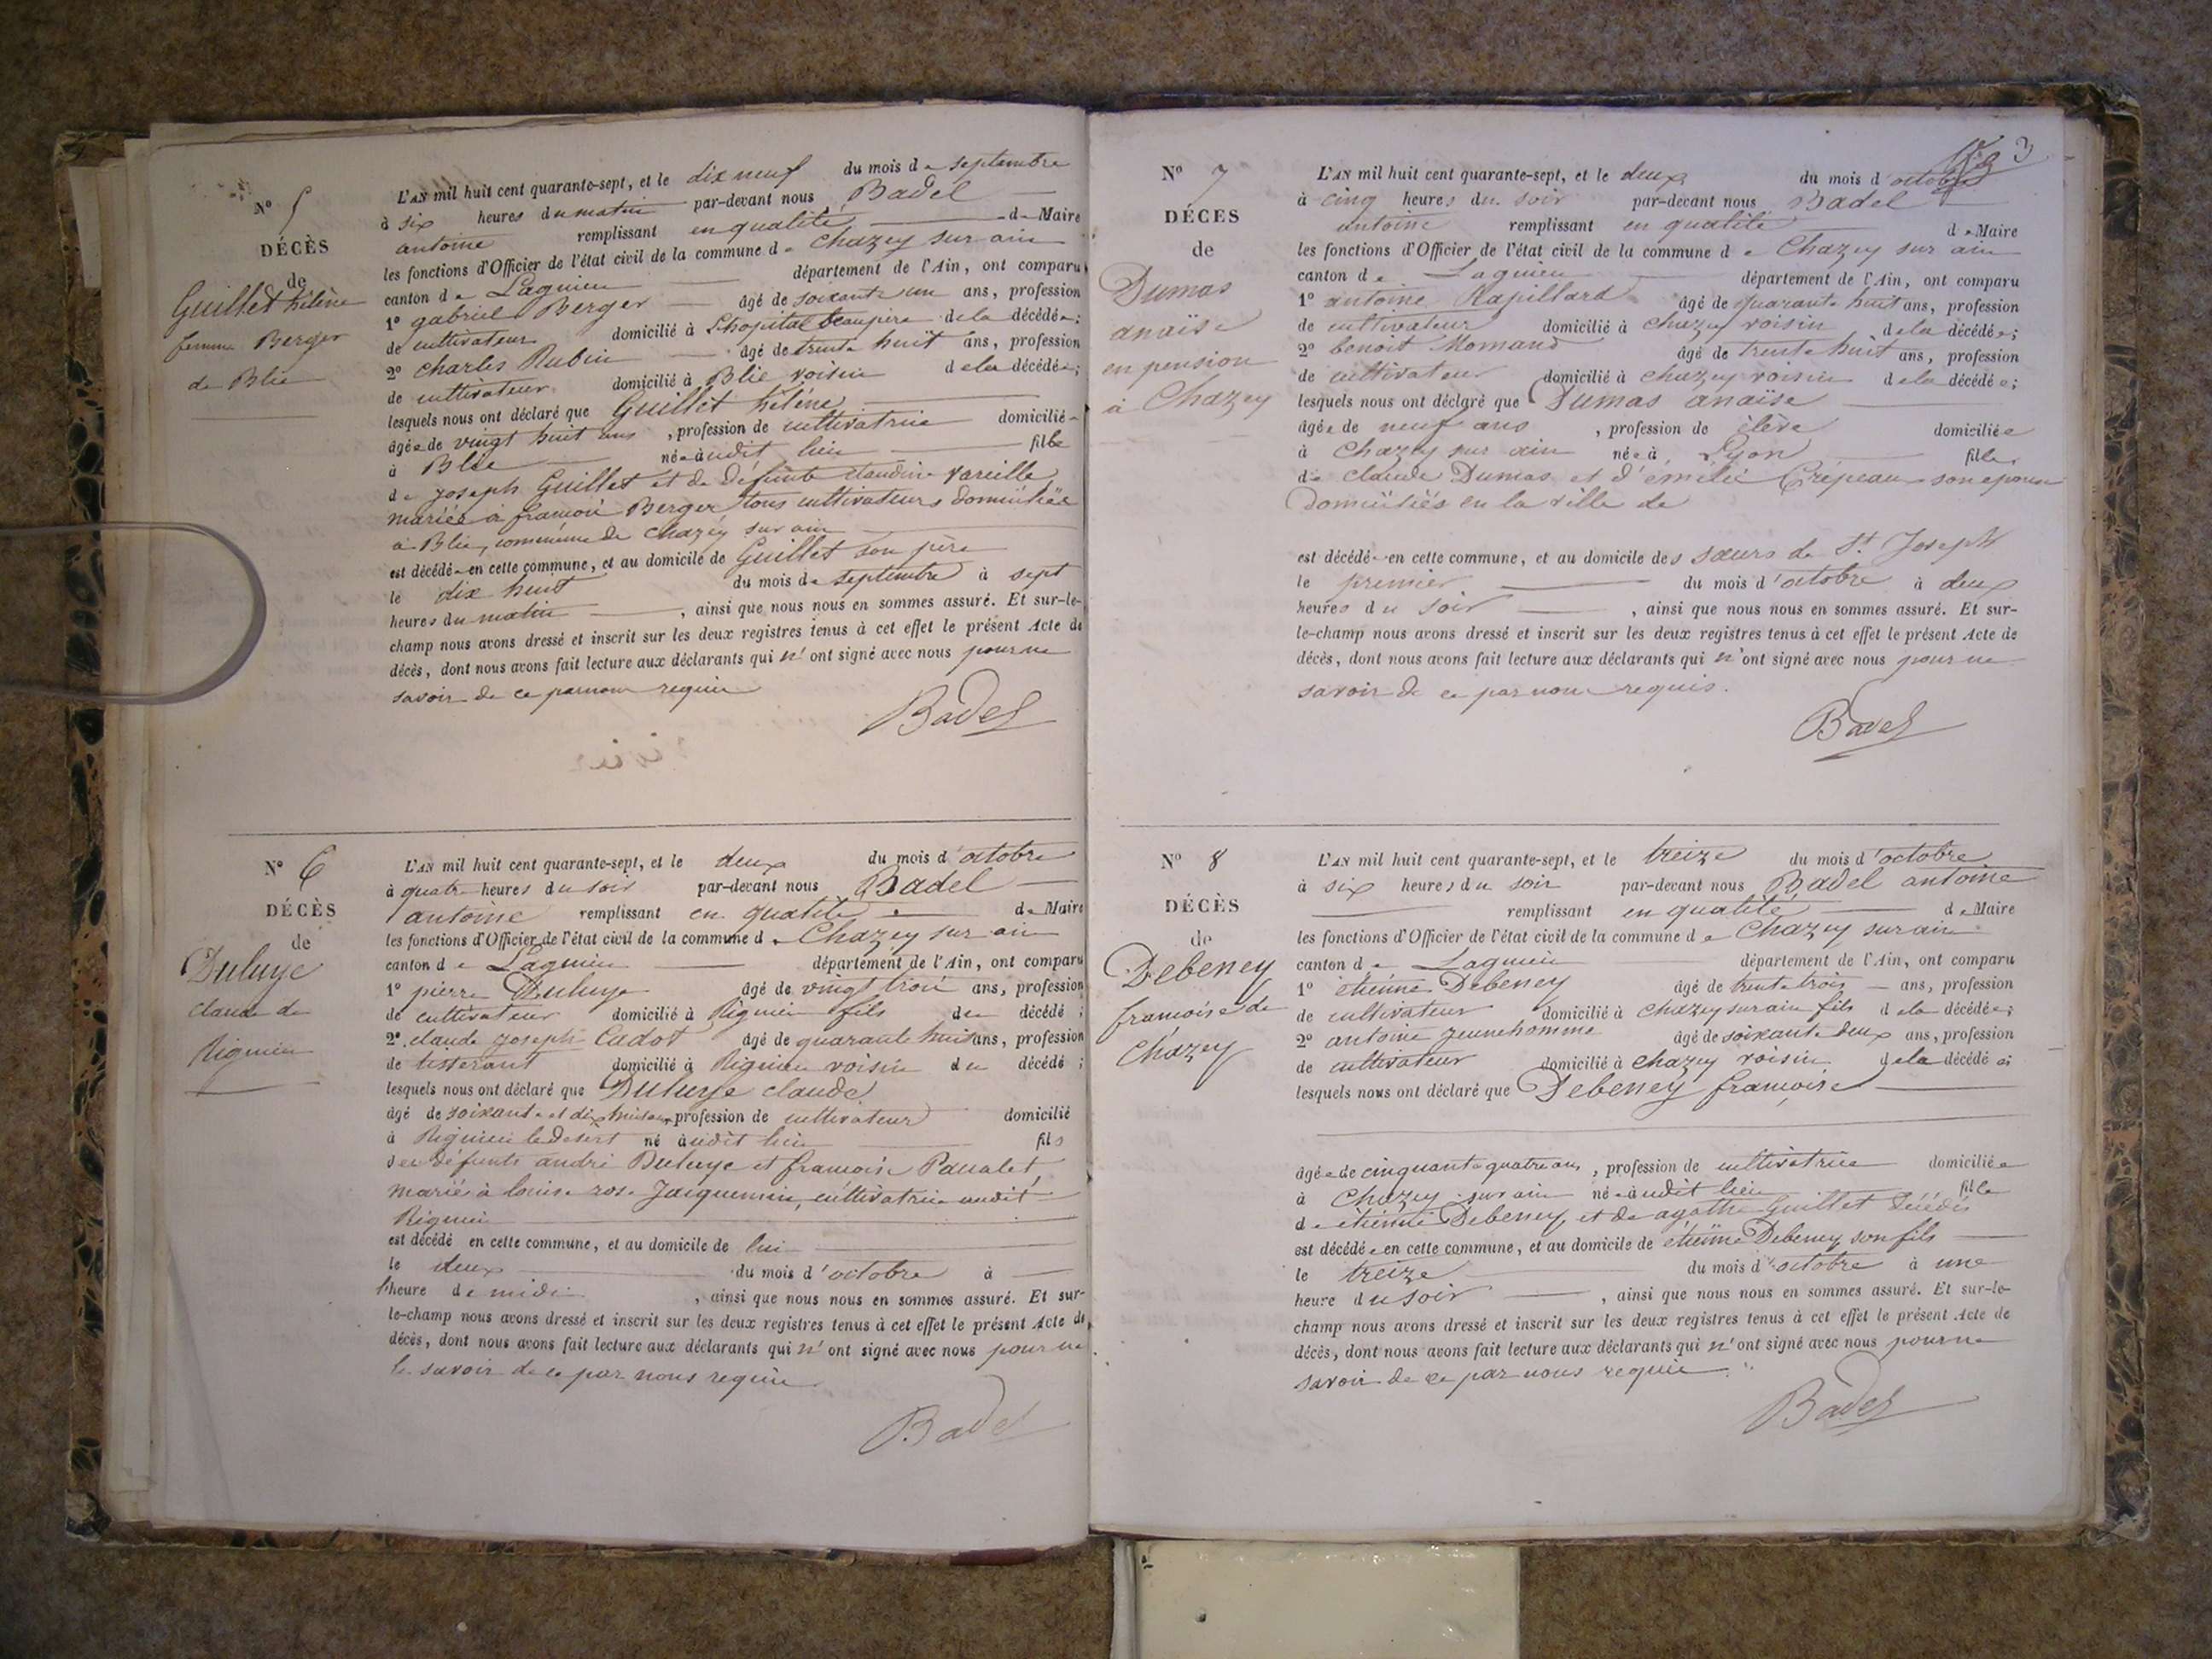 N° 5
DÉCÈS
de
Guillet hélène
femme Berger
de Blie
L'AN mil huit cent quarante-sept, et le dix neuf du mois de septembre
à six heures du matin par-devant nous Badel
antoine remplissant en qualité de Maire
les fonctions d'Officier de l'état civil de la commune de Chazey sur ain
canton de Lagnieu département de l'Ain, ont comparu
1° gabriel Berger âgé de soixante un ans, profession
de cultivateur domicilié à de la décédée;
2° charles Rubin âgé de trente huit ans, profession
de cultivateur domicilié à Blie voisin de la décédée;
lesquels nous ont déclaré que Guillet hélène
âgée de vingt huit ans, profession de cultivatrice domiciliée
à Blie née audit lieu fille
de joseph Guillet et de défunte claudine Vareille
mariée à francois Berger tous cultivateurs domiciliés
à Blie, commune de chazey sur ain
est décédée en cette commune, et au domicile de Guillet son père
le dix huit du mois de septembre à sept
heures du matin, ainsi que nous nous en sommes assuré. Et sur-le-
champ nous avons dressé et inscrit sur les deux registres tenus à cet effet le présent Acte de
décès, dont nous avons fait lecture aux déclarants qui n'ont signé avec nous pour ne
savoir de ce par nous requis
Badel
N° 6
DÉCÈS
de
Duluye
claude de
Rignieu
L'AN mil huit cent quarante-sept, et le deux du mois d'octobre
à quatre heures du soir par-devant nous Badel
antoine remplissant en qualité de Maire
les fonctions d'Officier de l'état civil de la commune de Chazey sur ain
canton de Lagnieu département de l'Ain, ont comparu
1° pierre Duluye âgé de vingt trois ans, profession
de cultivateur domicilié à Rignieu fils du décédé;
2° claude joseph Cadot âgé de quarante huit ans, profession
de tisserant domicilié à Rignieu voisin du décédé;
lesquels nous ont déclaré que Duluye claude
âgé de soixante et dix huit ans, profession de cultivateur domicilié
à Rignieu le desert né audit lieu fils
des défunts andré Duluye et francoise
marié à louise rose Jacquemin, cultivatrice audit
Rignieu
est décédé en cette commune, et au domicile de lui
le deux du mois d'octobre à
l'heure de midi, ainsi que nous nous en sommes assuré. Et sur-
le-champ nous avons dressé et inscrit sur les deux registres tenus à cet effet le présent Acte de
décès, dont nous avons fait lecture aux déclarants qui n'ont signé avec nous pour ne
le savoir de ce par nous requis
Badel
3
N° 7
DÉCES
de
Dumas
anaïse
en pension
à Chazey
L'AN mil huit cent quarante-sept, et le deux du mois d'octobre
à cinq heures du soir par-devant nous Badel
antoine remplissant en qualité de Maire
les fonctions d'Officier de l'état civil de la commune de Chazey sur ain
canton de Lagnieu département de l'Ain, ont comparu
1° antoine Rapillard âgé de quarante huit ans, profession
de cultivateur domicilié à chazey voisin de la décédée;
2° benoit Momand âgé de trente huit ans, profession
de cultivateur domicilié à chazey voisin de la décédée;
lesquels nous ont déclaré que Dumas anaïse
âgée de neuf ans, profession de élève domiciliée
à Chazey sur ain née à Lyon fille
de claude Dumas et d'émélie Crépeau son epouse
domiciliés en la ville de
est décédée en cette commune, et au domicile des sœurs de St. Joseph
le premier du mois d'octobre à deux
heures du soir, ainsi que nous nous en sommes assuré. Et sur-
le-champ nous avons dressé et inscrit sur les deux registres tenus à cet effet le présent Acte de
décès, dont nous avons fait lecture aux déclarants qui n'ont signé avec nous pour ne
savoir de ce par nous requis.
Badel
N° 8
DÉCÈS
de
Debeney
francoise de
Chazey
L'AN mil huit cent quarante-sept, et le treize du mois d'octobre
à six heures du soir par-devant nous Badel antoine
remplissant en qualité de Maire
les fonctions d'Officier de l'état civil de la commune de Chazey sur ain
canton de Lagnieu département de l'Ain, ont comparu
1° étienne Debeney âgé de trente trois ans, profession
de cultivateur domicilié à chazey sur ain fils de la décédée;
2° antoine jeunehomme âgé de soixante deux ans, profession
de cultivateur domicilié à chazey voisin de la décédée;
lesquels nous ont déclaré que Debeney françoise
âgée de cinquante quatre ans, profession de cultivatrice domiciliée
à Chazey sur ain née audit lieu fille
de étienne Debeney et de agathe Guillet décédés
est décédée en cette commune, et au domicile de étienne Debeney son fils
le treize du mois d'octobre à une
heure du soir, ainsi que nous nous en sommes assuré. Et sur-le-
champ nous avons dressé et inscrit sur les deux registres tenus à cet effet le présent Acte de
décès, dont nous avons fait lecture aux déclarants qui n'ont signé avec nous pour ne
savoir de ce par nous requis
Badel